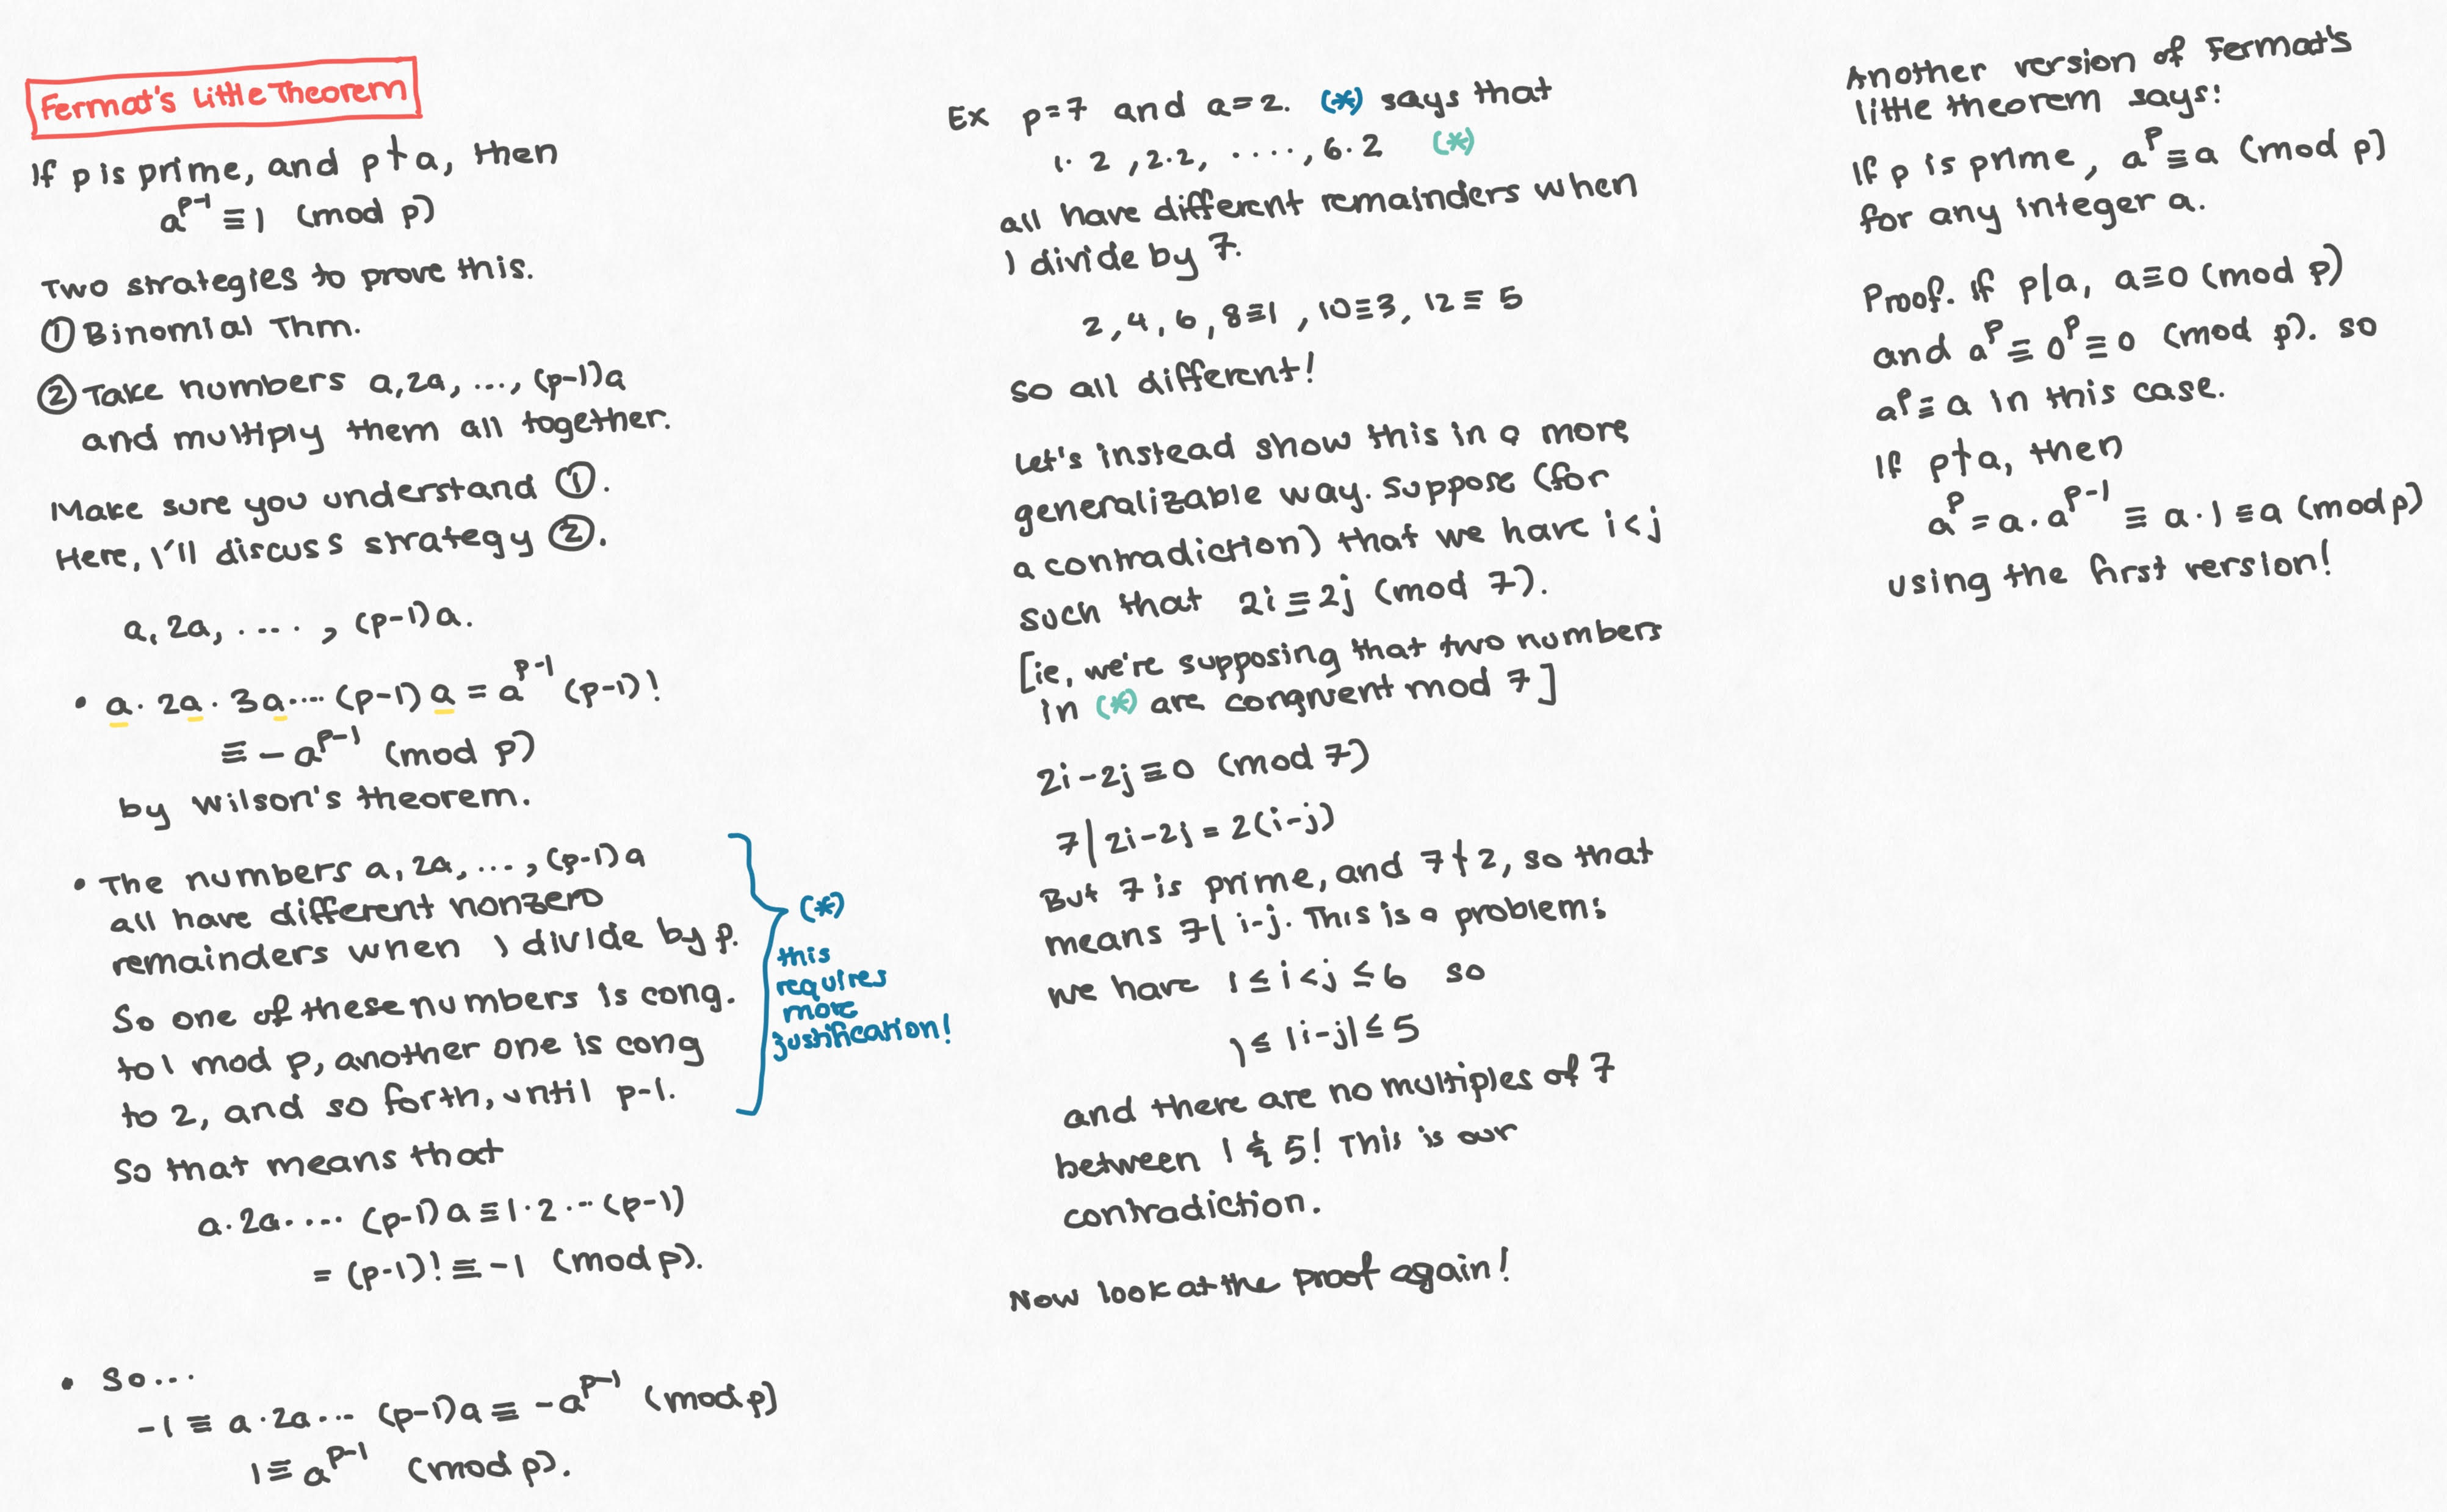 Fermat's Little Theorem
If p is prime, and p∤a, then
a^{p-1} ≡ 1 (mod p)
Two strategies to prove this.
① Binomial Thm.
② Take numbers a, 2a, ..., (p-1)a
and multiply them all together.
Make sure you understand ①.
Here, I'll discuss strategy ②.
a, 2a, ...., (p-1)a.
• a · 2a · 3a .... (p-1) a = a^{p-1} (p-1)!
≡ -a^{p-1} (mod p)
by Wilson's theorem.
• The numbers a, 2a, ..., (p-1)a
all have different nonzero
remainders when I divide by p.
So one of these numbers is cong.
to 1 mod p, another one is cong
to 2, and so forth, until p-1.
(*)
this
requires
more
justification!
So that means that
a · 2a .... (p-1)a ≡ 1·2 ... (p-1)
= (p-1)! ≡ -1 (mod p).
• So...
-1 ≡ a · 2a ... (p-1)a ≡ -a^{p-1} (mod p)
1 ≡ a^{p-1} (mod p).
Ex p=7 and a=2. (*) says that
1·2, 2·2, ...., 6·2 (*)
all have different remainders when
I divide by 7.
2, 4, 6, 8≡1, 10≡3, 12≡5
so all different!
Let's instead show this in a more
generalizable way. Suppose (for
a contradiction) that we have i<j
such that 2i ≡ 2j (mod 7).
[ie, we're supposing that two numbers
in (*) are congruent mod 7]
2i-2j ≡ 0 (mod 7)
7 | 2i-2j = 2(i-j)
But 7 is prime, and 7∤2, so that
means 7 | i-j. This is a problem:
we have 1 ≤ i < j ≤ 6 so
1 ≤ |i-j| ≤ 5
and there are no multiples of 7
between 1 & 5! This is our
contradiction.
Now look at the proof again!
Another version of Fermat's
little theorem says:
If p is prime, a^p ≡ a (mod p)
for any integer a.
Proof. If p|a, a≡0 (mod p)
and a^p ≡ 0^p ≡ 0 (mod p). so
a^p ≡ a in this case.
If p∤a, then
a^p = a · a^{p-1} ≡ a · 1 ≡ a (mod p)
using the first version!